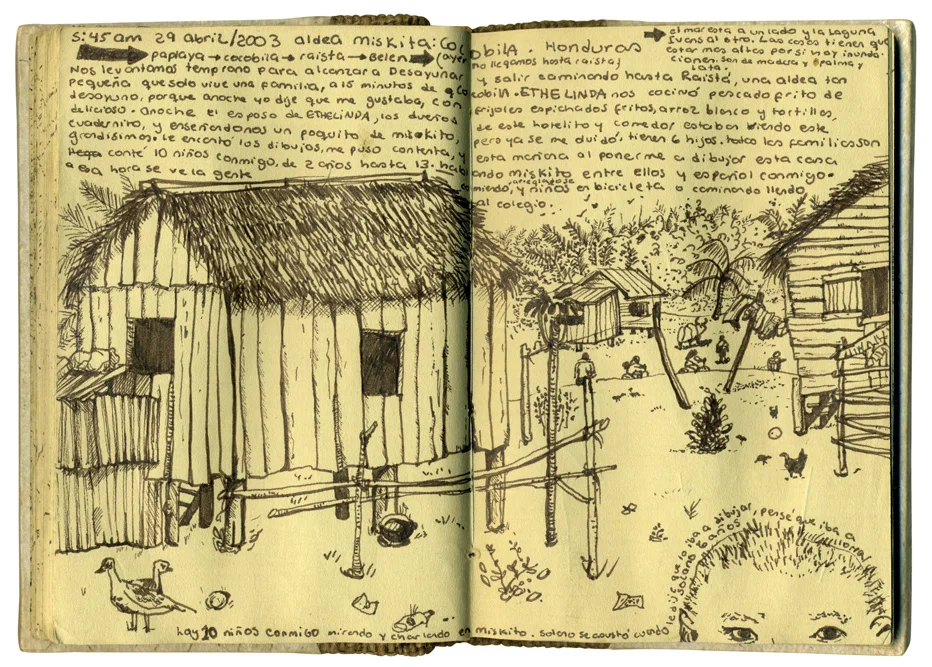 5:45 am 29 abril/2003 aldea miskita: COCOBILA. Honduras
paplaya → cocobila → raista → Belen (ayer no llegamos hasta raista)
Nos levantamos temprano para alcanzar a Desayunar y salir caminando hasta Raistá, una aldea tan
pequeña que solo vive una familia, a 15 minutos de Cocobila. ETHELINDA nos cocinó pescado frito de
desayuno, porque anoche yo dije que me gustaba, con frijoles espichados fritos, arroz blanco y tortillas,
delicioso. Anoche el esposo de ETHELINDA, los dueños de este hotelito y comedor estaban viendo este
cuadernito, y enseñándonos un poquito de miskito, pero ya se me olvidó, tienen 6 hijos. todas las familias son
grandísimas. Le encantó los dibujos, me puso contenta, y esta mañana al ponerme a dibujar esta casa
conté 10 niños conmigo, de 2 años hasta 13. hablando miskito entre ellos y español conmigo.
a esa hora se ve la gente comiendo, arreglandose y niños en bicicleta o caminando llendo
al colegio.
→ el mar esta a un lado y la laguna
al otro. Las casas tienen que
estar mas altas por si hay inunda-
ciones. son de madera y palma y
lata.
hay 10 niños conmigo mirando y charlando en miskito. Solano se asustó cuando
le dije que lo iba a dibujar, pensé que iba a
llorar
Solano 6 años